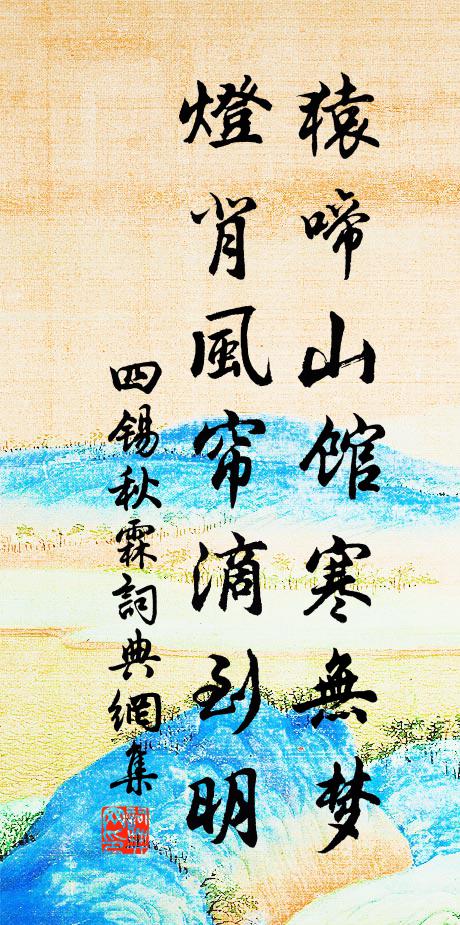 猿啼山館寒無梦
燈背風帘滴到明
四锡秋霖詞典網集